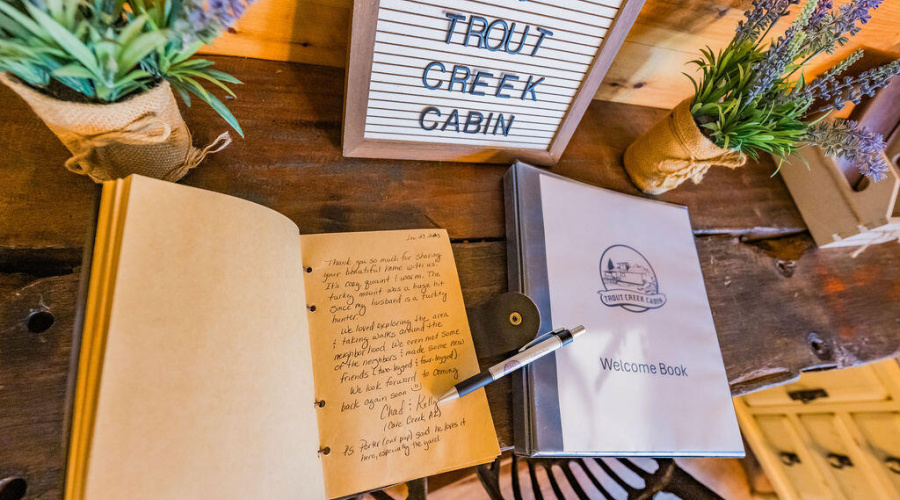 TROUT
CREEK
CABIN
Thank you so much for sharing
your beautiful home with us.
It's cozy, quaint & warm. The
turkey mount was a huge hit
since my husband is a turkey
hunter.
We loved exploring the area
& taking walks around the
neighborhood. We even met some
of the neighbors & made some new
friends (two-legged & four-legged)
We look forward to coming
back again soon
Chad & Kelly
(Cave Creek, AZ)
PS Porter (our pup) said he loves it
here, especially the yard.
TROUT CREEK CABIN
Welcome Book